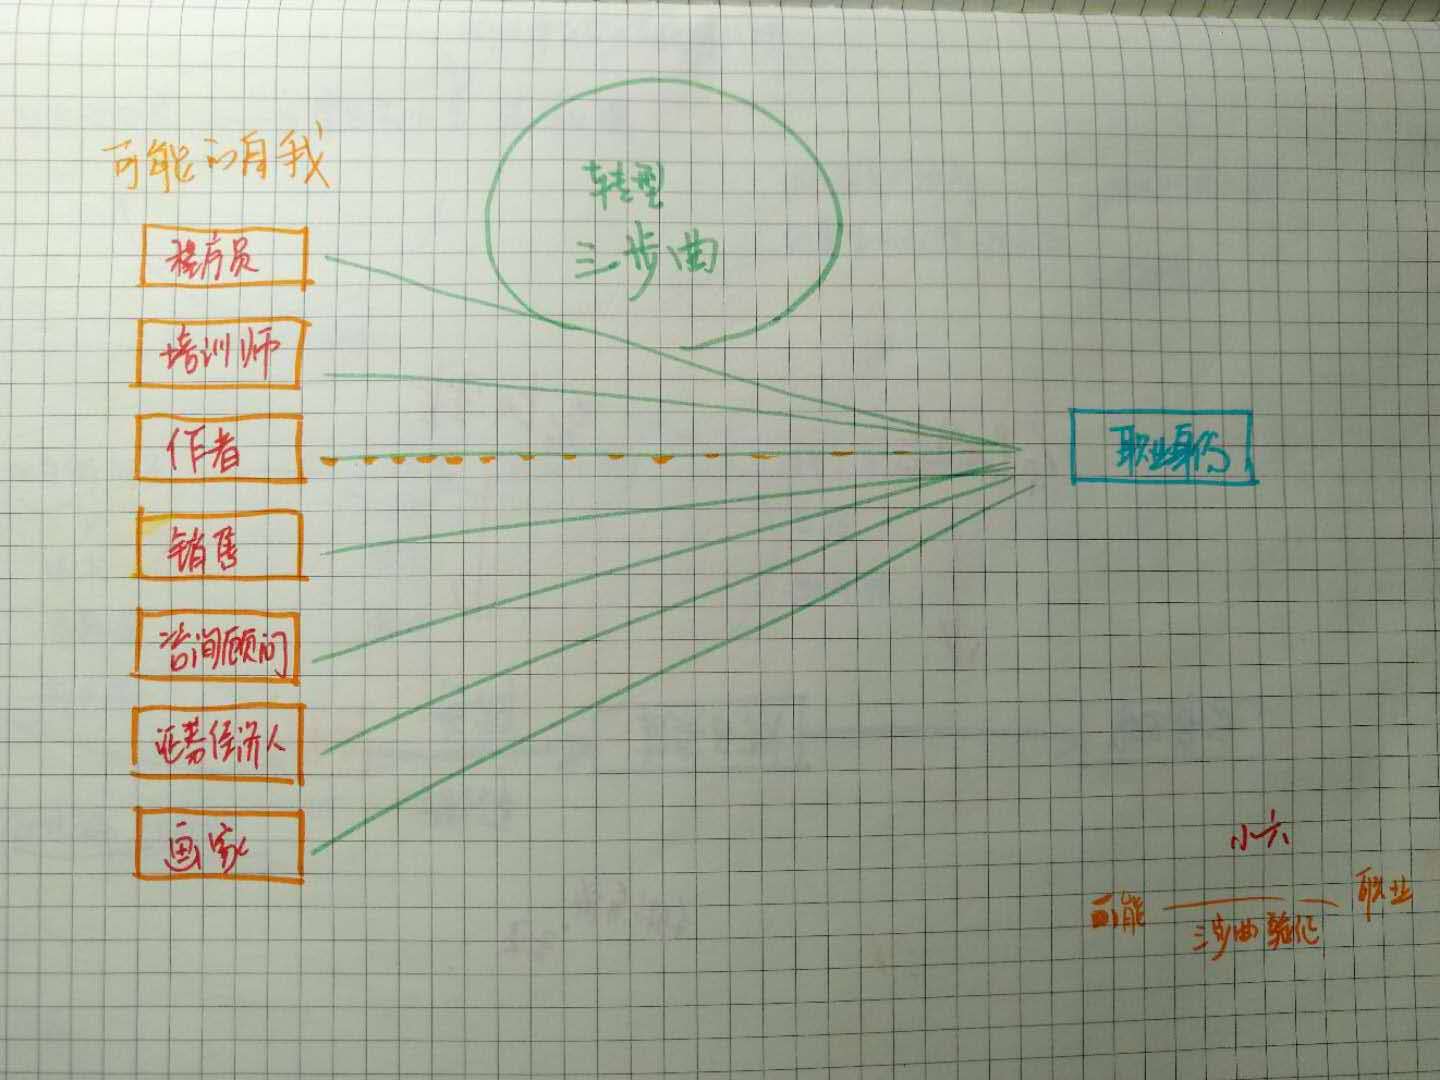 可能的自我
转型
三步曲
程序员
培训师
作者
职业身份
销售
咨询顾问
证券经济人
画家
小六
可能
职业
三步曲验证